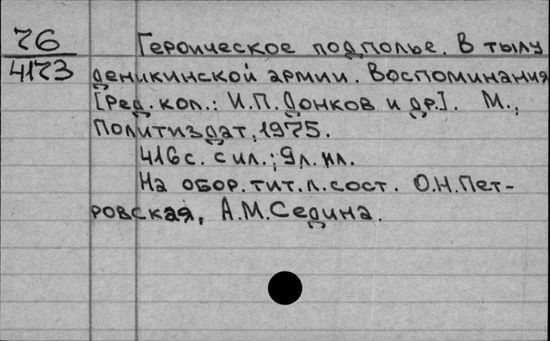 76 Героическое подполье. В тылу
4173 деникинской армии. Воспоминания
[Ред. кол.: И.П. Донков и др.]. М.,
Политиздат, 1975.
416 с. с ил.; 9 л. ил.
На обор. тит. л. сост. О.Н. Пет-
ровская, А.М. Седина.